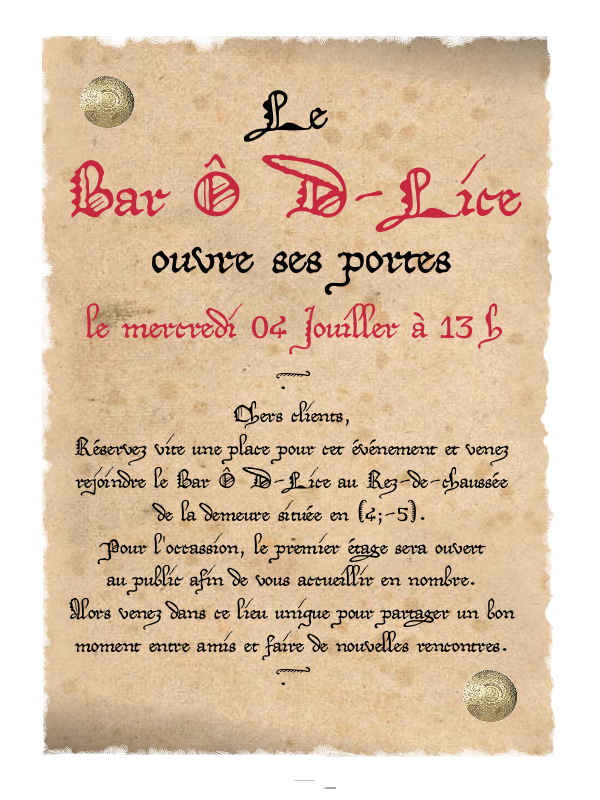 Le
Bar Ô D-Lice
ouvre ses portes
le mercredi 04 Jouiller à 13 h
Chers clients,
Réservez vite une place pour cet événement et venez
rejoindre le Bar Ô D-Lice au Rez-de-chaussée
de la demeure située en (4;-5).
Pour l'occassion, le premier étage sera ouvert
au public afin de vous accueillir en nombre.
Alors venez dans ce lieu unique pour partager un bon
moment entre amis et faire de nouvelles rencontres.